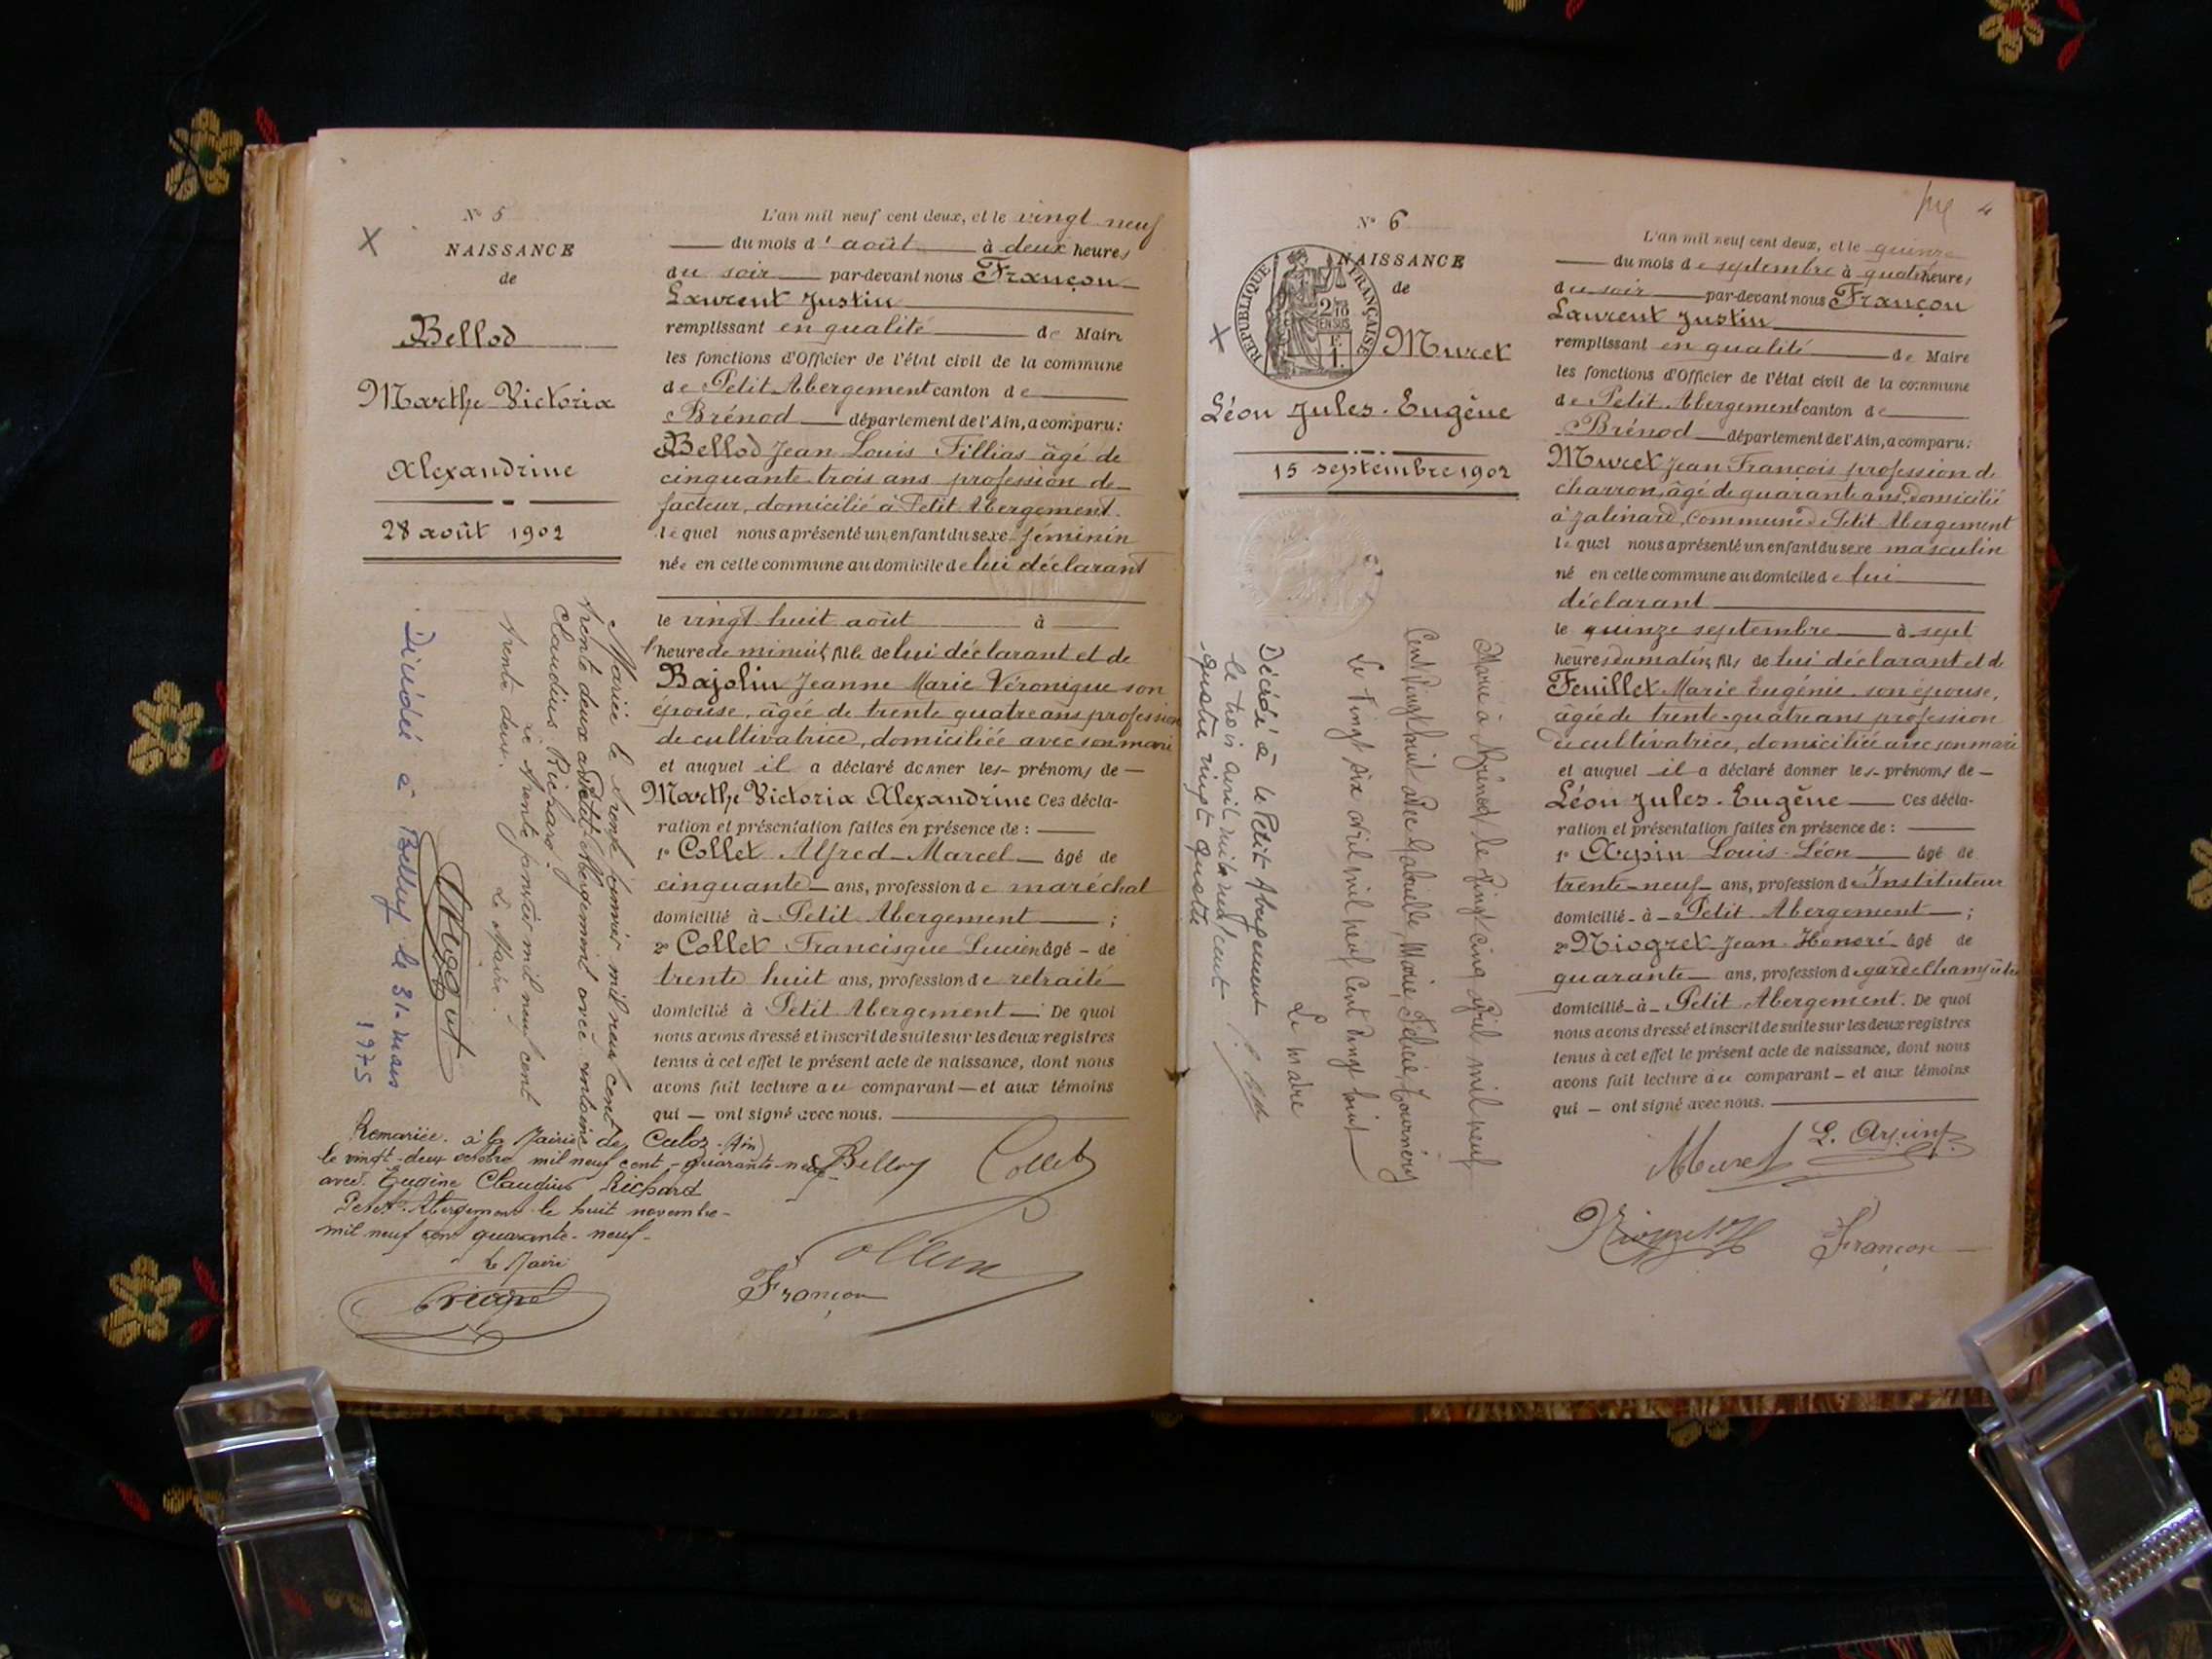 N° 5
NAISSANCE
de
Bellod
Marthe Victoria
Alexandrine
28 août 1902
L'an mil neuf cent deux, et le vingt neuf
du mois d'août à deux heures
du soir par-devant nous Françon
Laurent Justin
remplissant en qualité de Maire
les fonctions d'Officier de l'état civil de la commune
de Petit Abergement canton de
Brénod département de l'Ain, a comparu:
Bellod Jean Louis Fillias âgé de
cinquante trois ans profession de
facteur, domicilié à Petit Abergement.
lequel nous a présenté un enfant du sexe féminin
née en cette commune au domicile de lui déclarant
le vingt huit août à
l'heure de minuit, fille de lui déclarant et de
Bajolin Jeanne Marie Véronique son
épouse, âgée de trente quatre ans profession
de cultivatrice, domiciliée avec son mari
et auquel il a déclaré donner les prénoms de
Marthe Victoria Alexandrine Ces décla-
ration et présentation faites en présence de :
1° Collet Alfred Marcel âgé de
cinquante ans, profession de maréchal
domicilié à Petit Abergement ;
2° Collet Francisque Lucien âgé de
trente huit ans, profession de retraité
domicilié à Petit Abergement. De quoi
nous avons dressé et inscrit de suite sur les deux registres
tenus à cet effet le présent acte de naissance, dont nous
avons fait lecture au comparant et aux témoins
qui ont signé avec nous.
Bellod Collet
Françon
Mariée le trente janvier mil neuf cent
trente deux à Petit-Abergement avec Antoine
Claudius Richard.
Le trente janvier mil neuf cent
trente deux.
Le Maire.
Décédé à Belley le 31 mars
1975
Remariée à la Mairie de Culoz (Ain)
le vingt-deux octobre mil neuf cent-quarante-neuf
avec Eugène Claudius Richard
Petit-Abergement le huit novembre
mil neuf cent quarante-neuf-
Le Maire
N° 6
NAISSANCE
de
REPUBLIQUE FRANÇAISE
2/10
EN SUS
Muret
Léon Jules-Eugène
15 septembre 1902
4
L'an mil neuf cent deux, et le quinze
du mois de septembre à quatre heures
du soir par-devant nous Françon
Laurent Justin
remplissant en qualité de Maire
les fonctions d'Officier de l'état civil de la commune
de Petit Abergement canton de
Brénod département de l'Ain, a comparu:
Muret Jean François profession de
charron, âgé de quarante ans, domicilié
à Jalinard, commune de Petit Abergement
lequel nous a présenté un enfant du sexe masculin
né en cette commune au domicile de lui
déclarant
le quinze septembre à sept
heures du matin, fils de lui déclarant et de
Feuillet Marie Eugénie son épouse,
âgée de trente-quatre ans profession
de cultivatrice, domiciliée avec son mari
et auquel il a déclaré donner les prénoms de
Léon Jules-Eugène Ces décla-
ration et présentation faites en présence de :
1° Arpin Louis-Léon âgé de
trente-neuf ans, profession d'Instituteur
domicilié à Petit Abergement ;
2° Niogret Jean Honoré âgé de
quarante ans, profession de garde champêtre
domicilié à Petit Abergement. De quoi
nous avons dressé et inscrit de suite sur les deux registres
tenus à cet effet le présent acte de naissance, dont nous
avons fait lecture au comparant et aux témoins
qui ont signé avec nous.
Muret L. Arpin
Niogret H Françon
Marié à Brénod le vingt cinq avril mil neuf
Cent vingt huit avec Gabrielle, Marie, Félicie, Tournéry
Le vingt six avril mil neuf Cent vingt huit
Le maire
Décédé à le Petit Abergement
le trois avril mil neuf cent
quatre vingt quatre